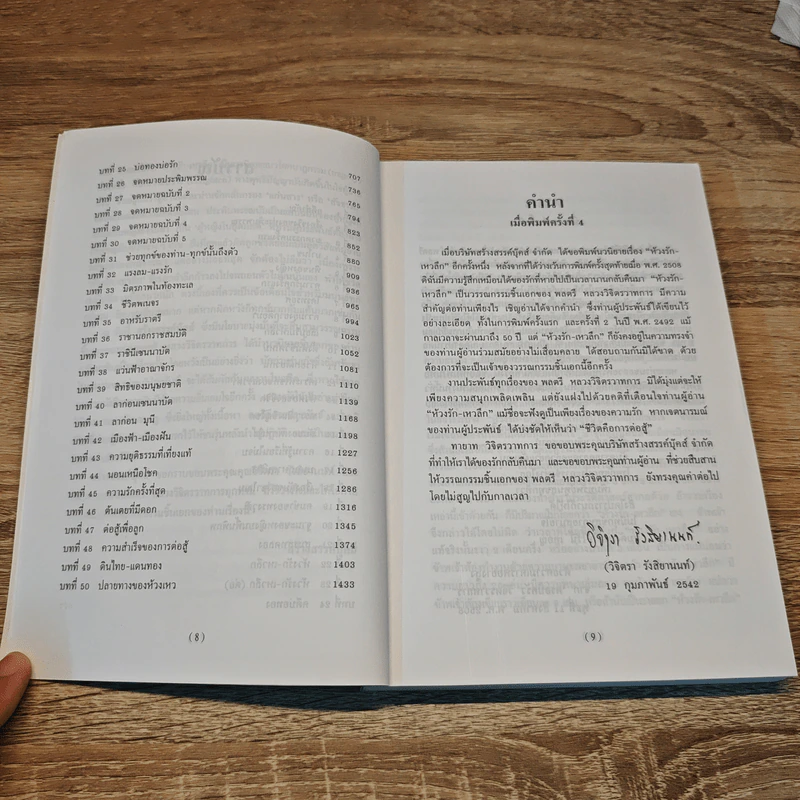 บทที่ 25 บ่อทองบ่อรัก 707
บทที่ 26 จดหมายประพิมพรรณ 736
บทที่ 27 จดหมายฉบับที่ 2 765
บทที่ 28 จดหมายฉบับที่ 3 794
บทที่ 29 จดหมายฉบับที่ 4 823
บทที่ 30 จดหมายฉบับที่ 5 852
บทที่ 31 ช่วยทุกข์ของท่าน-ทุกข์นั้นถึงตัว 880
บทที่ 32 แรงลม-แรงรัก 909
บทที่ 33 มิตรภาพในท้องทะเล 936
บทที่ 34 ชีวิตพเนจร 965
บทที่ 35 อาหรับราตรี 994
บทที่ 36 ราชานอกราชสมบัติ 1023
บทที่ 37 ราชินีเซนนาบัด 1052
บทที่ 38 แว่นฟ้าอาณาจักร 1081
บทที่ 39 สิทธิของมนุษยชาติ 1110
บทที่ 40 ลาก่อนเซนนาบัด 1139
บทที่ 41 ลาก่อน มุนี 1168
บทที่ 42 เมืองฟ้า-เมืองฝัน 1198
บทที่ 43 ความยุติธรรมที่เที่ยงแท้ 1227
บทที่ 44 นอนเหนือโชค 1256
บทที่ 45 ความรักครั้งที่สุด 1286
บทที่ 46 ต้นเตยที่มีดอก 1316
บทที่ 47 ต่อสู้เพื่อลูก 1345
บทที่ 48 ความสำเร็จของการต่อสู้ 1374
บทที่ 49 ดินไทย-แดนทอง 1403
บทที่ 50 ปลายทางของห้วงเหว 1433
(8)
คำนำ
เมื่อพิมพ์ครั้งที่ 4
เมื่อบริษัทสร้างสรรค์บุ๊คส์ จำกัด ได้ขอพิมพ์นวนิยายเรื่อง "ห้วงรัก-
เหวลึก" อีกครั้งหนึ่ง หลังจากที่ได้ว่างเว้นการพิมพ์ครั้งสุดท้ายเมื่อ พ.ศ. 2508
ดิฉันมีความรู้สึกเหมือนได้ของรักที่หายไปเป็นเวลานานกลับคืนมา "ห้วงรัก-
เหวลึก" เป็นวรรณกรรมชิ้นเอกของ พลตรี หลวงวิจิตรวาทการ มีความ
สำคัญต่อท่านเพียงไร เชิญอ่านได้จากคำนำ ซึ่งท่านผู้ประพันธ์ได้เขียนไว้
อย่างละเอียด ทั้งในการพิมพ์ครั้งแรก และครั้งที่ 2 ในปี พ.ศ. 2492 แม้
กาลเวลาจะผ่านมาถึง 50 ปี แต่ "ห้วงรัก-เหวลึก" ก็ยังคงอยู่ในความทรงจำ
ของท่านผู้อ่านร่วมสมัยอย่างไม่เสื่อมคลาย ได้สอบถามกันมิได้ขาด ด้วย
ต้องการที่จะเป็นเจ้าของวรรณกรรมชิ้นเอกนี้อีกครั้ง
งานประพันธ์ทุกเรื่องของ พลตรี หลวงวิจิตรวาทการ มิได้มุ่งแต่จะให้
เพียงความสนุกเพลิดเพลิน แต่ยังแฝงไปด้วยคติที่เตือนใจท่านผู้อ่าน
"ห้วงรัก-เหวลึก" แม้ชื่อจะฟังดูเป็นเพียงเรื่องของความรัก หากเจตนารมณ์
ของท่านผู้ประพันธ์ ได้บ่งชัดให้เห็นว่า "ชีวิตคือการต่อสู้"
ทายาท วิจิตรวาทการ ขอขอบพระคุณบริษัทสร้างสรรค์บุ๊คส์ จำกัด
ที่ทำให้เราได้ของรักกลับคืนมา และขอขอบพระคุณท่านผู้อ่าน ที่ช่วยสืบสาน
ให้วรรณกรรมชิ้นเอกของ พลตรี หลวงวิจิตรวาทการ ยังทรงคุณค่าต่อไป
โดยไม่สูญไปกับกาลเวลา
วิจิตรา รังสิยานนท์
(วิจิตรา รังสิยานนท์)
19 กุมภาพันธ์ 2542
(9)